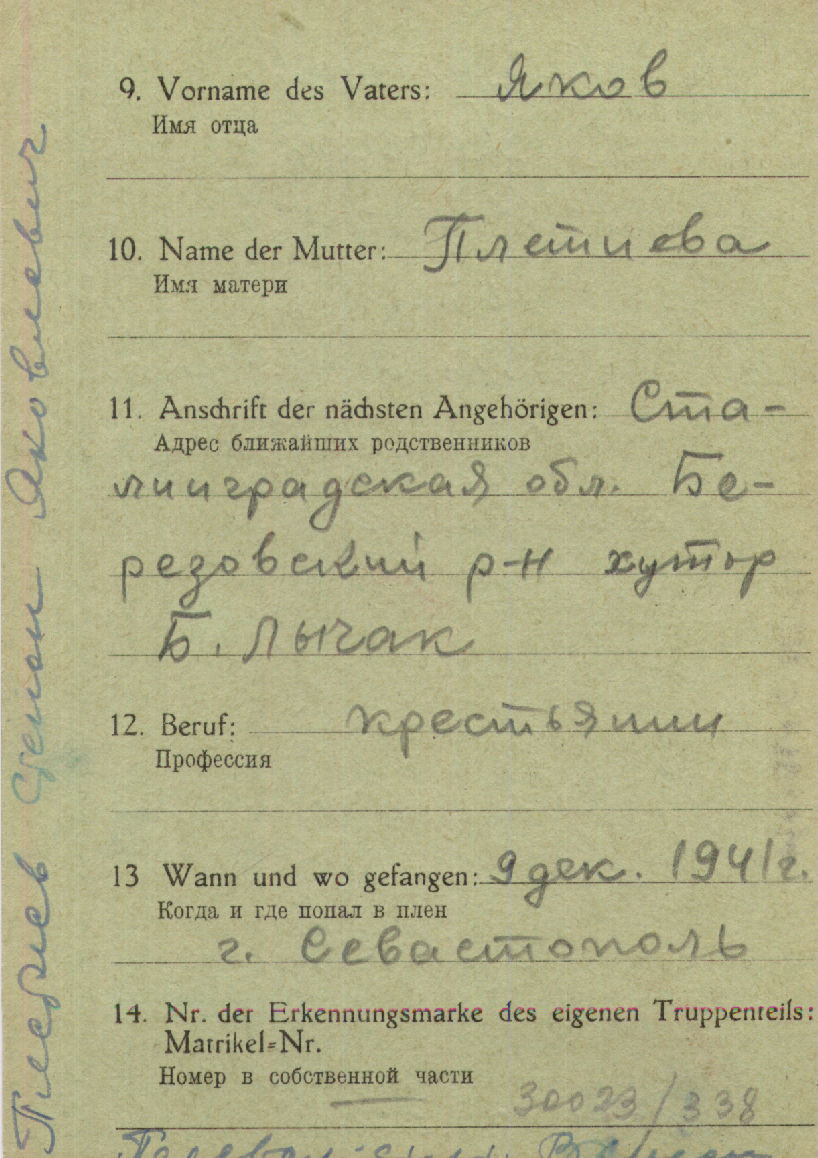 9. Vorname des Vaters: Яков
Имя отца
10. Name der Mutter: Плетнева
Имя матери
11. Anschrift der nächsten Angehörigen: Ста-
Адрес ближайших родственников
линградская обл. Бе-
резовский р-н хутор
Б. Лычак
12. Beruf: крестьянин
Профессия
13 Wann und wo gefangen: 9 дек. 1941 г.
Когда и где попал в плен
г. Севастополь
14. Nr. der Erkennungsmarke des eigenen Truppenteils:
Matrikel=Nr.
Номер в собственной части
30023/338
Яковлевич